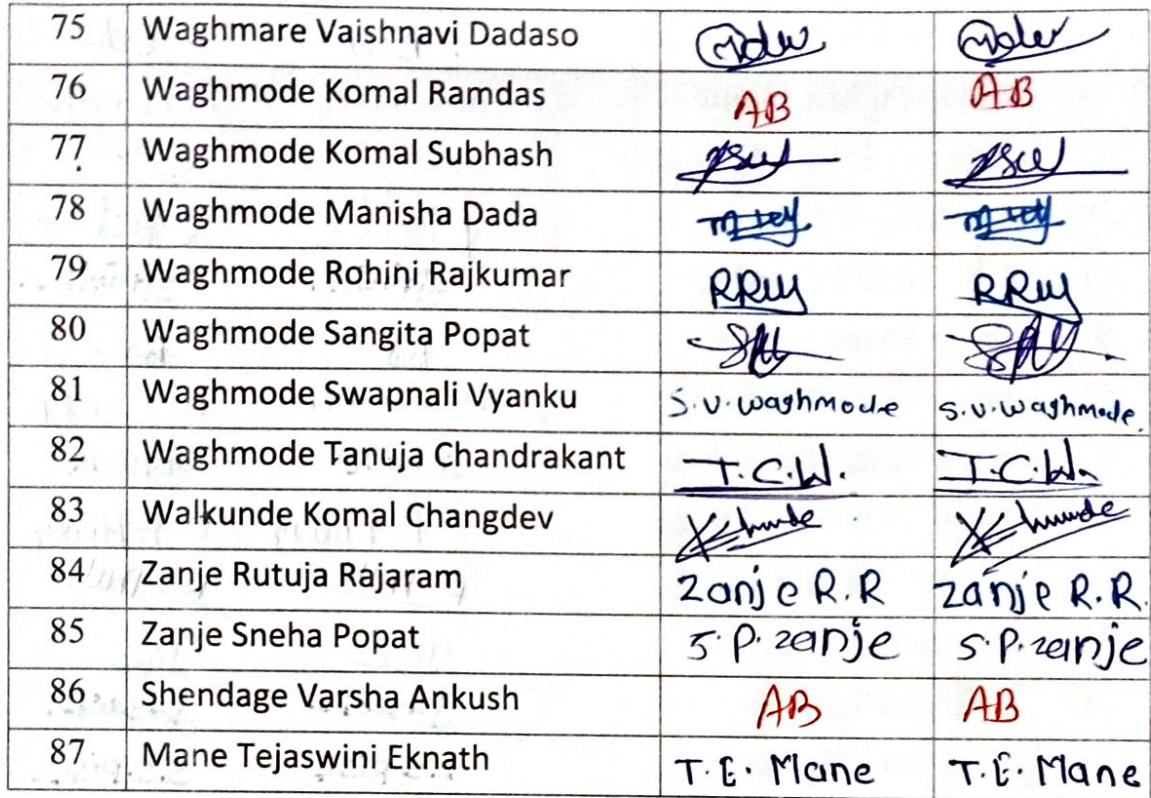 75 Waghmare Vaishnavi Dadaso
76 Waghmode Komal Ramdas AB AB
77 Waghmode Komal Subhash
78 Waghmode Manisha Dada
79 Waghmode Rohini Rajkumar RRW RRW
80 Waghmode Sangita Popat
81 Waghmode Swapnali Vyanku S.V.Waghmode S.V.Waghmode.
82 Waghmode Tanuja Chandrakant T.C.W. T.C.W.
83 Walkunde Komal Changdev
84 Zanje Rutuja Rajaram Zanje R.R Zanje R.R.
85 Zanje Sneha Popat S.P.zanje S.P.zanje
86 Shendage Varsha Ankush AB AB
87 Mane Tejaswini Eknath T.E. Mane T.E. Mane